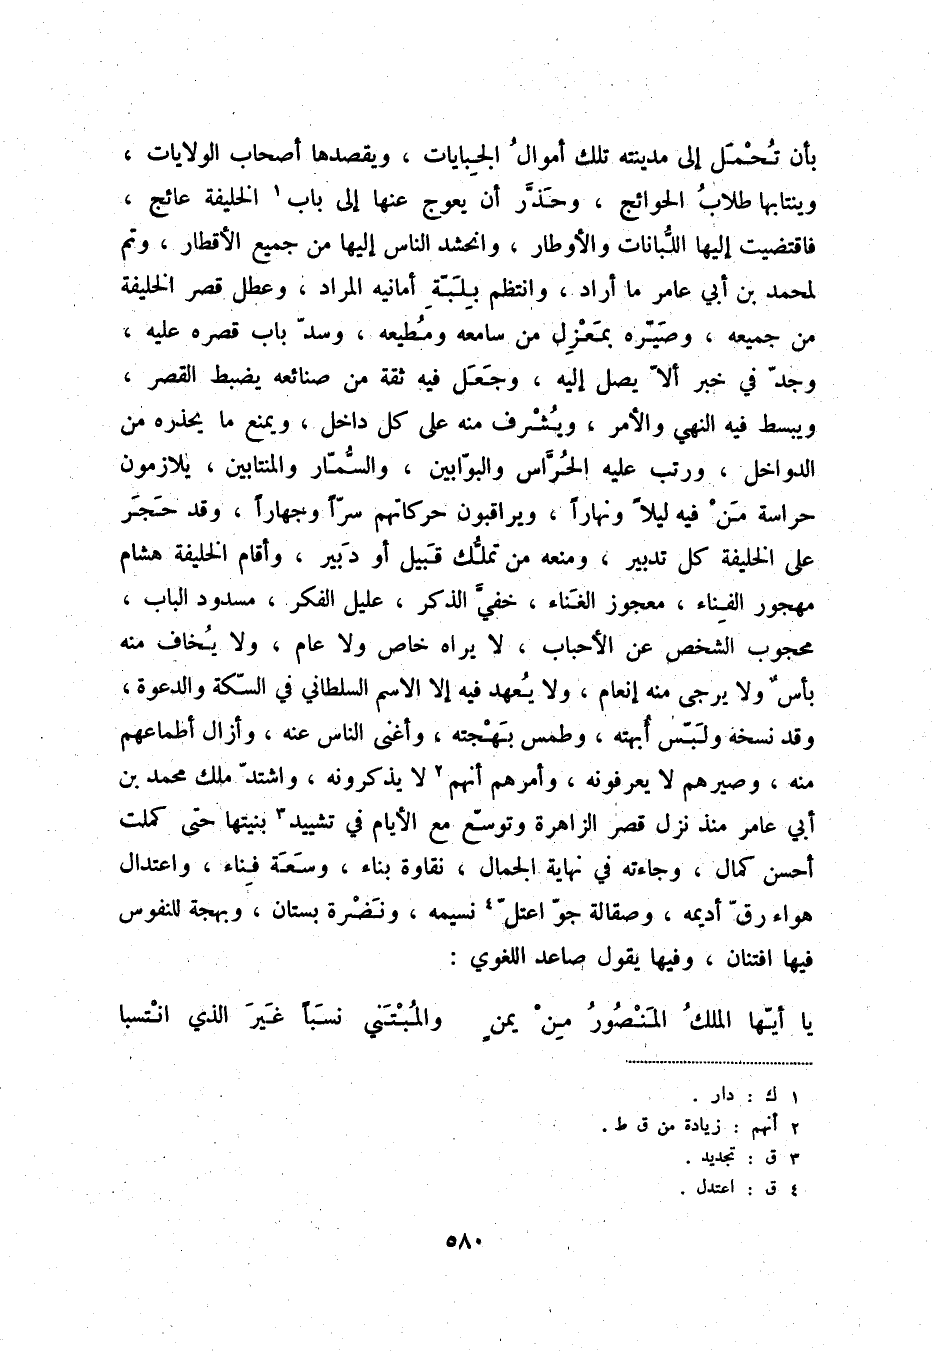 بأن تُحْمَل إلى مدينته تلك أموالُ الجِبايات ، ويقصدها أصحاب الولايات ،
وينتابها طلابُ الحوائج ، وحَذَّر أن يعوج عنها إلى باب ١ الخليفة عائج ،
فاقتضيت إليها اللُّبانات والأوطار ، وانحشد الناس إليها من جميع الأقطار ، وتم
لمحمد بن أبي عامر ما أراد ، وانتظم بِلَبَّةِ أمانيه المراد ، وعطل قصر الخليفة
من جميعه ، وصَيَّره بمَعْزِل من سامعه ومُطيعه ، وسدّ باب قصره عليه ،
وجدّ في خبر ألاّ يصل إليه ، وجَعَل فيه ثقة من صنائعه يضبط القصر ،
ويبسط فيه النهي والأمر ، ويُشْرف منه على كل داخل ، ويمنع ما يحذره من
الدواخل ، ورتب عليه الحُرَّاس والبوّابين ، والسُّمّار والمنتابين ، يلازمون
حراسة مَنْ فيه ليلاً ونهاراً ، ويراقبون حركاتهم سرّاً وجهاراً ، وقد حَجَر
على الخليفة كل تدبير ، ومنعه من تملُّك قَبيل أو دَبير ، وأقام الخليفة هشام
مهجور الفِناء ، معجوز الغَناء ، خفيَّ الذكر ، عليل الفكر ، مسدود الباب ،
محجوب الشخص عن الأحباب ، لا يراه خاص ولا عام ، ولا يُخاف منه
بأسٌ ولا يرجى منه إنعام ، ولا يُعهد فيه إلا الاسم السلطاني في السّكة والدعوة ،
وقد نسخه ولَبّس أُبهته ، وطمس بَهْجته ، وأغنى الناس عنه ، وأزال أطماعهم
منه ، وصيرهم لا يعرفونه ، وأمرهم أنهم ٢ لا يذكرونه ، واشتدّ ملك محمد بن
أبي عامر منذ نزل قصر الزاهرة وتوسّع مع الأيام في تشييد ٣ بنيتها حتى كملت
أحسن كمال ، وجاءته في نهاية الجمال ، نقاوة بناء ، وسَعَة فِناء ، واعتدال
هواء رقّ أديمه ، وصقالة جوّ اعتلّ ٤ نسيمه ، ونَضْرة بستان ، وبهجة للنفوس
فيها افتنان ، وفيها يقول صاعد اللغوي :
يا أيّها الملكُ المَنْصُورُ مِنْ يمنٍ والمُبْتَني نسَباً غَيرَ الذي انْتسبا
١ ك : دار .
٢ أنهم : زيادة من ق ط .
٣ ق : تجديد .
٤ ق : اعتدل .
٥٨٠